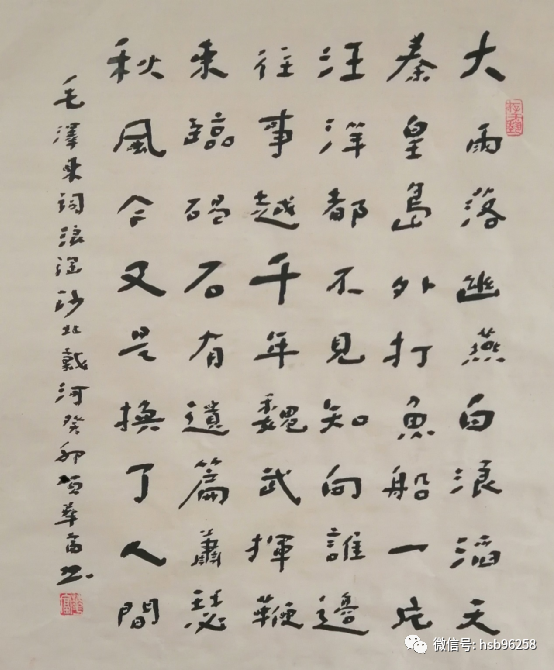 大雨落幽燕白浪滔天
秦皇島外打魚船一片
汪洋都不見知向誰邊
往事越千年魏武揮鞭
東臨碣石有遺篇蕭瑟
秋風今又是換了人間
毛澤東詞浪淘沙北戴河癸卯項華富书
微信号: hsb96258